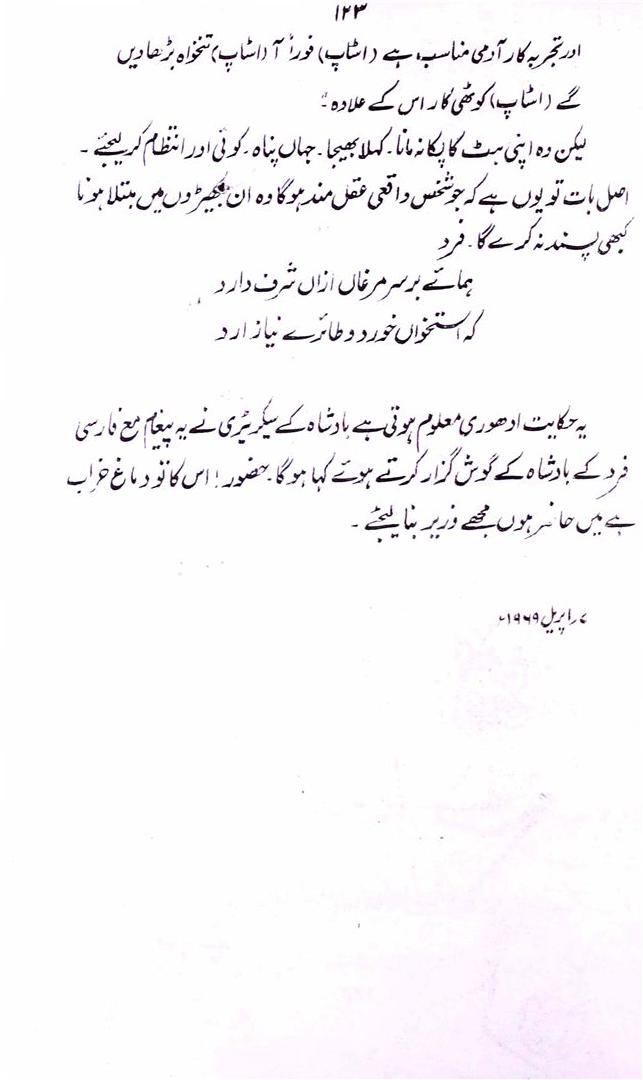 ۱۲۳
اور تجربہ کار آدمی مناسب ہے (اسٹاپ) فوراً آ (اسٹاپ) تنخواہ بڑھا دیں
گے (اسٹاپ) کوٹھی کار اس کے علاوہ۔"
لیکن وہ اپنی ہٹ کا پکا نہ مانا۔ کہلا بھیجا۔ جہاں پناہ۔ کوئی اور انتظام کر لیجئے۔
اصل بات تو یوں ہے کہ جو شخص واقعی عقل مند ہوگا وہ ان بکھیڑوں میں مبتلا ہونا
کبھی پسند نہ کرے گا۔ فرد
ہمائے بر سر مرغاں ازاں شرف دارد
کہ استخواں خورد و طائرے نیازارد
یہ حکایت ادھوری معلوم ہوتی ہے بادشاہ کے سیکریٹری نے یہ پیغام مع فارسی
فرد کے بادشاہ کے گوش گزار کرتے ہوئے کہا ہوگا۔ حضور! اس کا تو دماغ خراب
ہے میں حاضر ہوں مجھے وزیر بنا لیجئے۔
۷ر اپریل ۱۹۶۹ء